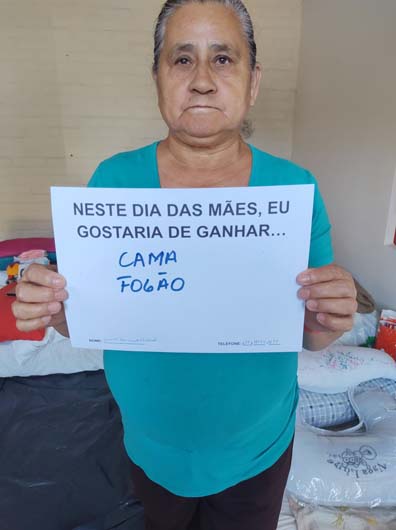 NESTE DIA DAS MÃES, EU
GOSTARIA DE GANHAR...
CAMA
FOGÃO
NOME:
TELEFONE: